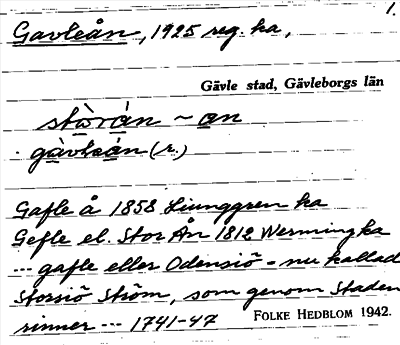 1.
Gavleån, 1925 reg. ka,
Gävle stad, Gävleborgs län
stòrán ~ an
gàvleán (r.)
Gafle å 1858 Ljunggren ka
Gefle el. Stor Ån 1812 Wermingka
--- gafle eller Odensiö = nu kallad
Storsiö Ström, som genom Staden
rinner --- 1741-47 FOLKE HEDBLOM 1942.